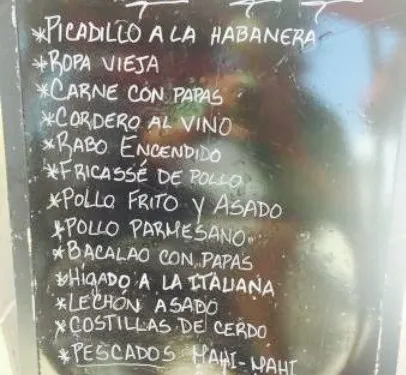 *PICADILLO A LA HABANERA
*ROPA VIEJA
*CARNE CON PAPAS
*CORDERO AL VINO
*RABO ENCENDIDO
*FRICASSÉ DE POLLO
*POLLO FRITO Y ASADO
*POLLO PARMESANO
*BACALAO CON PAPAS
*HIGADO A LA ITALIANA
*LECHÓN ASADO
*COSTILLAS DE CERDO
*PESCADOS MAHI-MAHI